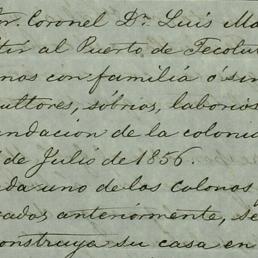 or. Coronel Dn. Luis Ma
tir al Puerto de Tecolu
nos con familia ó sin
ultores, sóbrios, laborios
undacion de la colonia
de Julio de 1856.
da uno de los colonos
ados anteriormente, se
construya su casa en